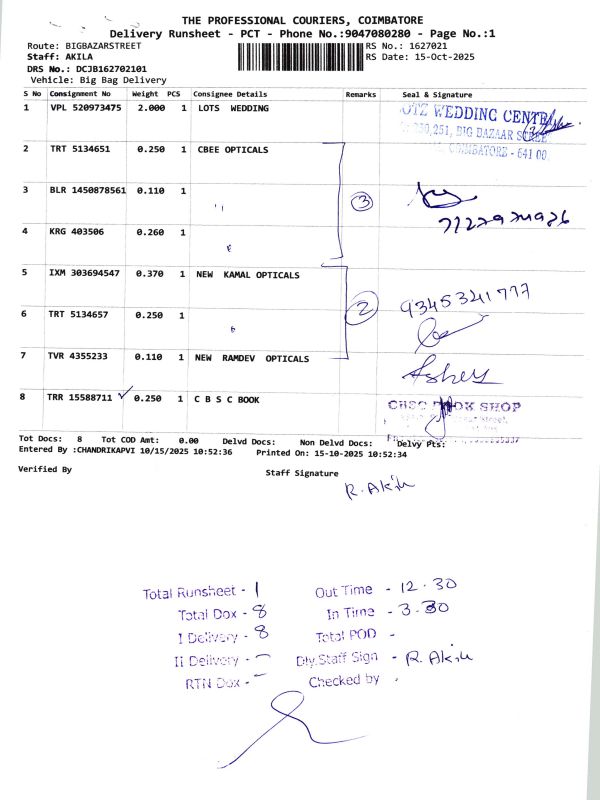 THE PROFESSIONAL COURIERS, COIMBATORE
Delivery Runsheet - PCT - Phone No.:9047080280 - Page No.:1
Route: BIGBAZARSTREET
RS No.: 1627021
Staff: AKILA
RS Date: 15-Oct-2025
DRS No.: DCJB162702101
Vehicle: Big Bag Delivery
S No Consignment No Weight PCS Consignee Details Remarks Seal & Signature
1 VPL 520973475 2.000 1 LOTS WEDDING
OTZ WEDDING CENTRE
BIG BAZAAR STREET
COIMBATORE - 641 00
2 TRT 5134651 0.250 1 CBEE OPTICALS
3 BLR 1450878561 0.110 1
3
4 KRG 403506 0.260 1
5 IXM 303694547 0.370 1 NEW KAMAL OPTICALS
2 9345341777
6 TRT 5134657 0.250 1
7 TVR 4355233 0.110 1 NEW RAMDEV OPTICALS
8 TRR 15588711 ✓ 0.250 1 C B S C BOOK
SHOP
Tot Docs: 8 Tot COD Amt: 0.00 Delvd Docs: Non Delvd Docs: Delvy Pts:
Entered By :CHANDRIKAPVI 10/15/2025 10:52:36 Printed On: 15-10-2025 10:52:34
Verified By Staff Signature
R. Akila
Total Runsheet - 1 Out Time - 12.30
Total Dox - 8 In Time - 3.30
I Delivery - 8 Total POD -
Ii Delivery - Dly.Staff Sign - R. Akila
RTN Dox - Checked by